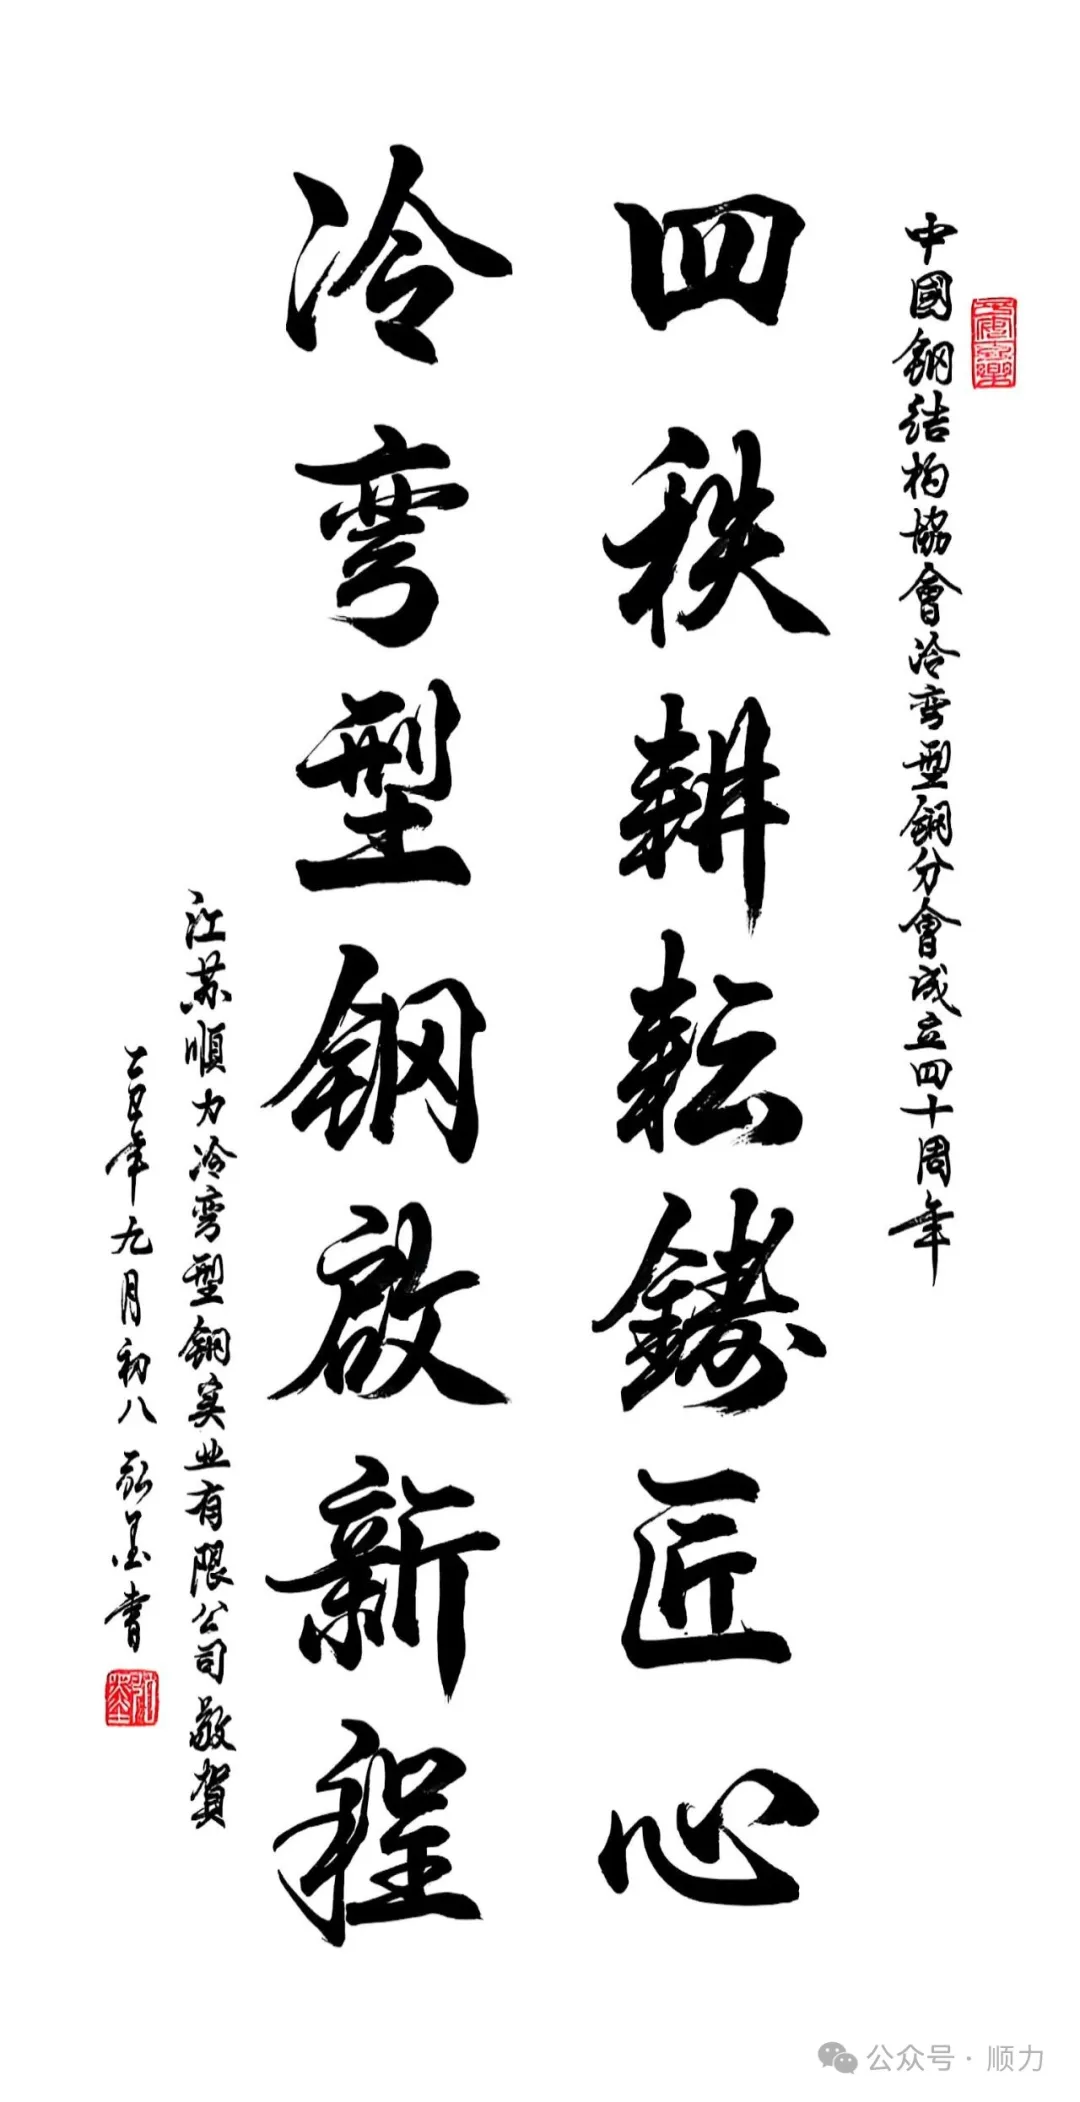 中國鋼结构協會冷弯型鋼分會成立四十周年
四秩耕耘鑄匠心
冷弯型钢啟新程
江苏順力冷弯型鋼実业有限公司敬賀
乙巳年九月初八 弘墨書
弘墨
公众号·顺力